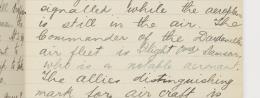 signalled while the aeroplane
is still in the air. The
Commander of the Dardanelles
air fleet is Flight Samson
who is a notable airman.
The allies distinguishing
mark for air craft is